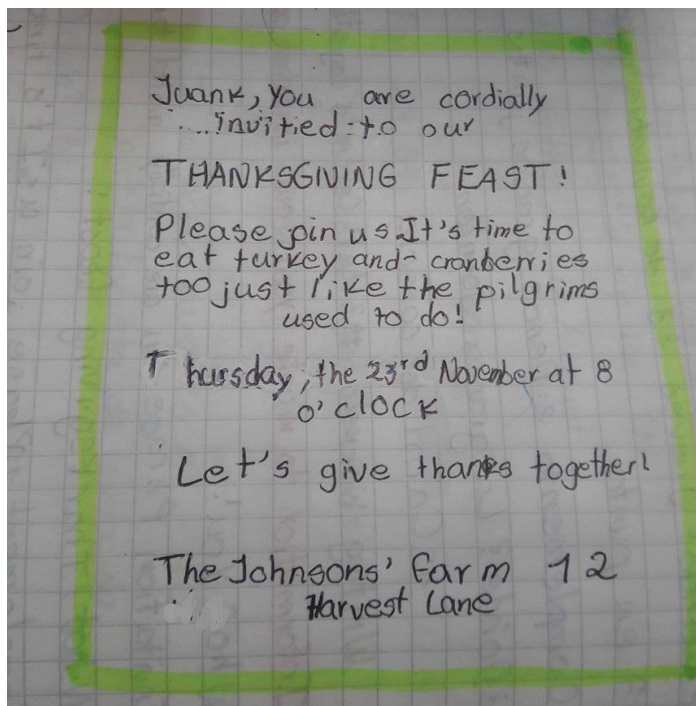 Juank, you are cordially
....invitied to our
THANKSGNING FEAST!
Please join us It's time to
eat turkey and cranberries
too just like the pilgrims
used to do!
Thursday, the 23rd November at 8
o'clock
Let's give thanks together!
The Johnsons' farm 12
Harvest Lane